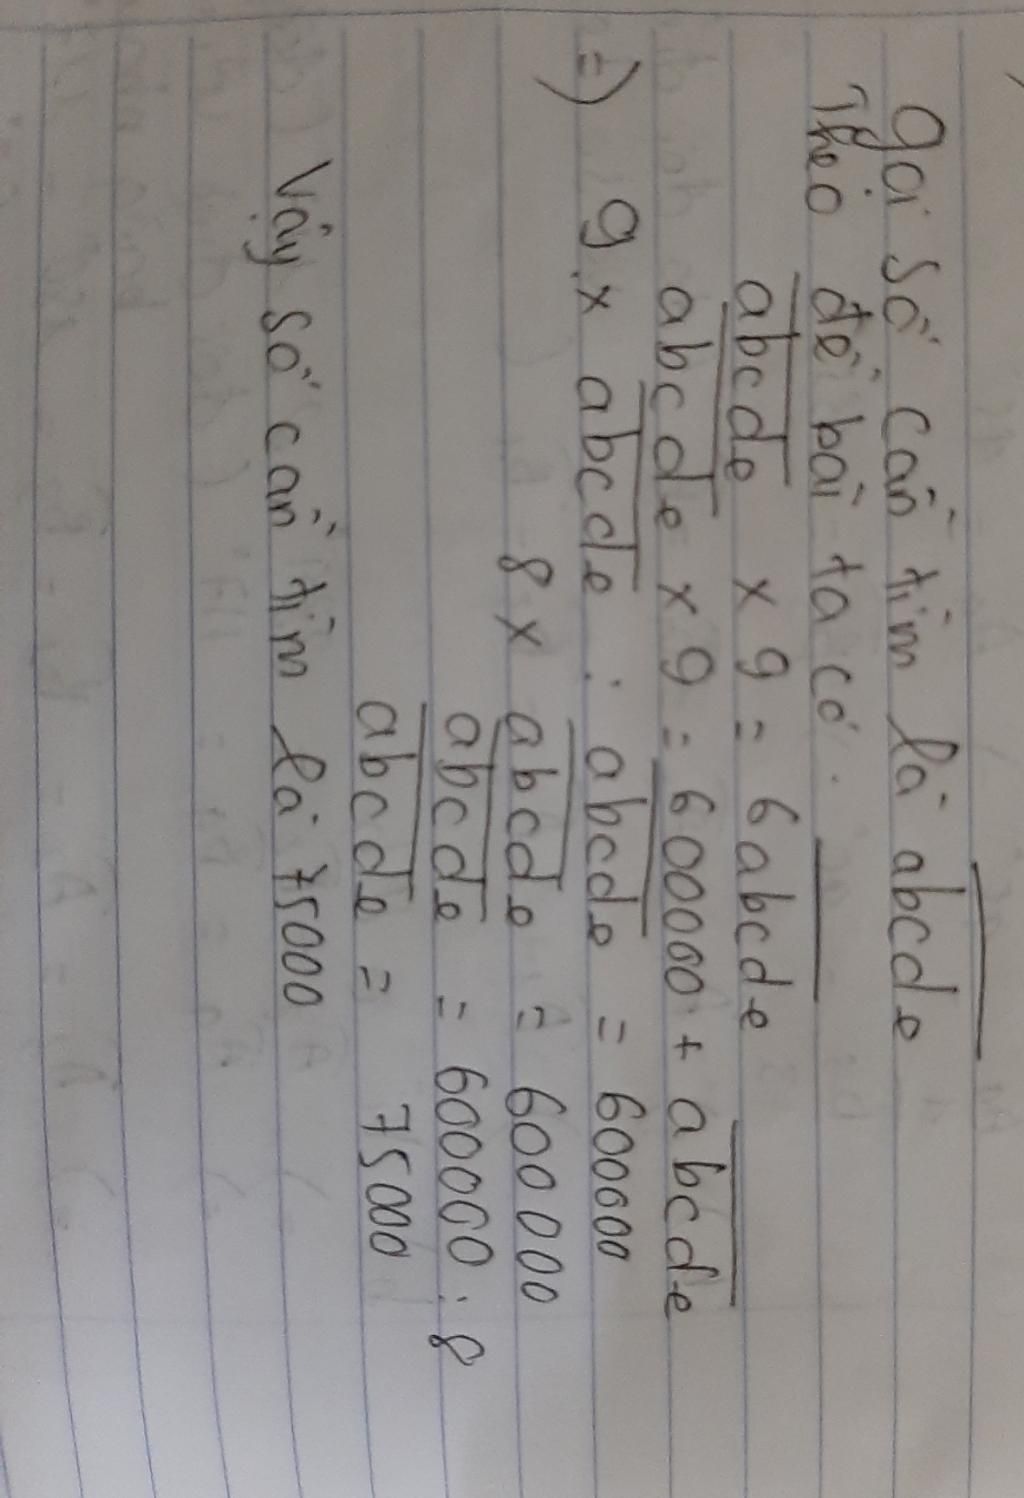 Gọi số cần tìm là abcde
Theo đề bài ta có.
abcde x 9 = 6abcde
abcde x 9 = 600000 + abcde
=) 9 x abcde : abcde = 600000
8 x abcde = 600 000
abcde = 600000 : 8
abcde = 75000
Vậy số cần tìm là 75000